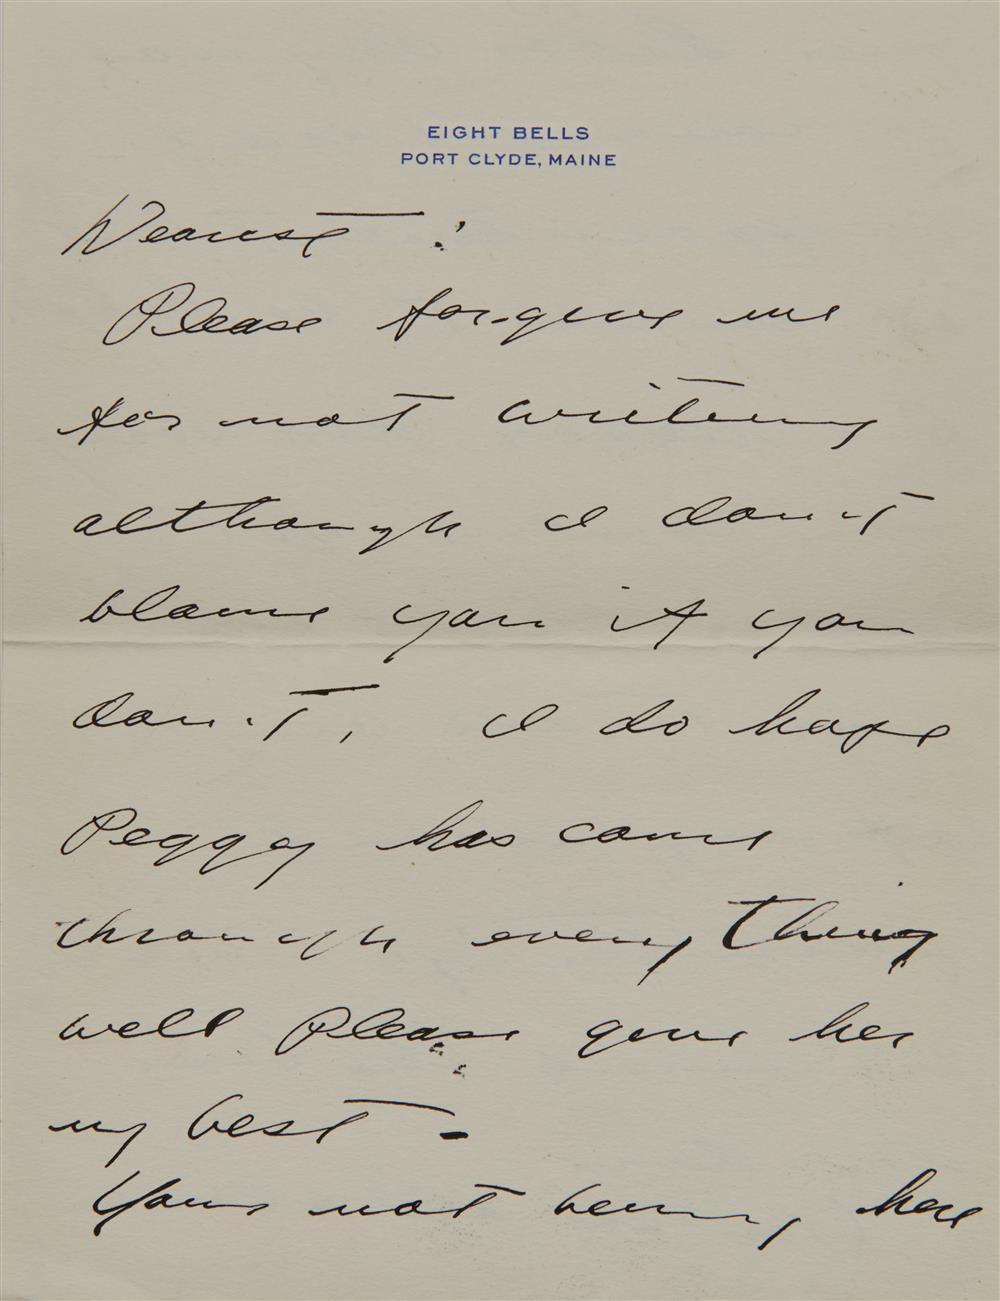 EIGHT BELLS
PORT CLYDE, MAINE
Dearest :
Please forgive me
for not writing
although I don't
blame you if you
don't, I do hope
Peggy has come
through everything
well Please give her
my best -
Your not being here